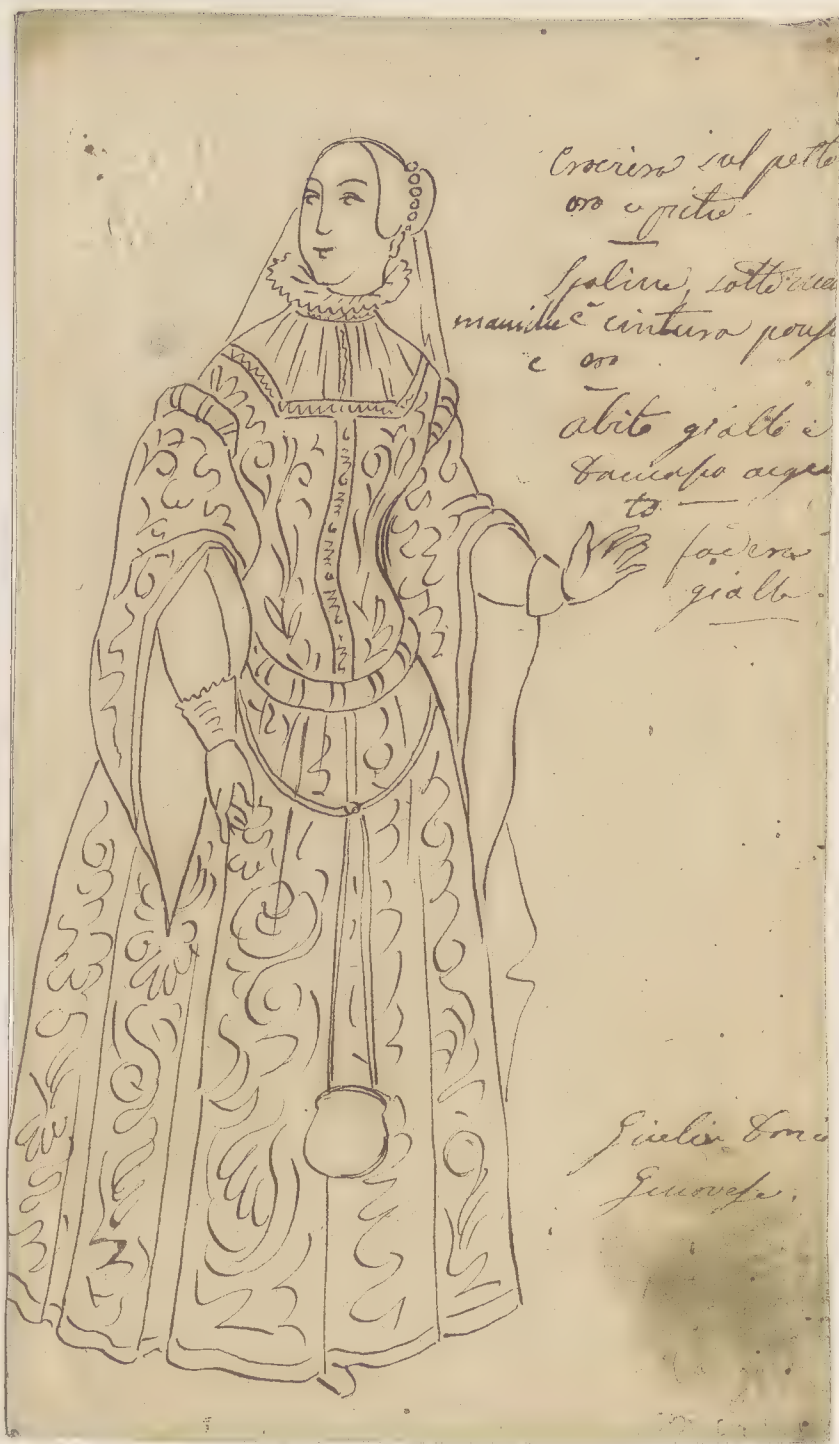 sul petto
oro e pietre.
Spaline, sotto
maniche e cintura
e oro
abito giallo e
Damasco argen
to
fodera
giallo.
Giulia Doria
Genovese.